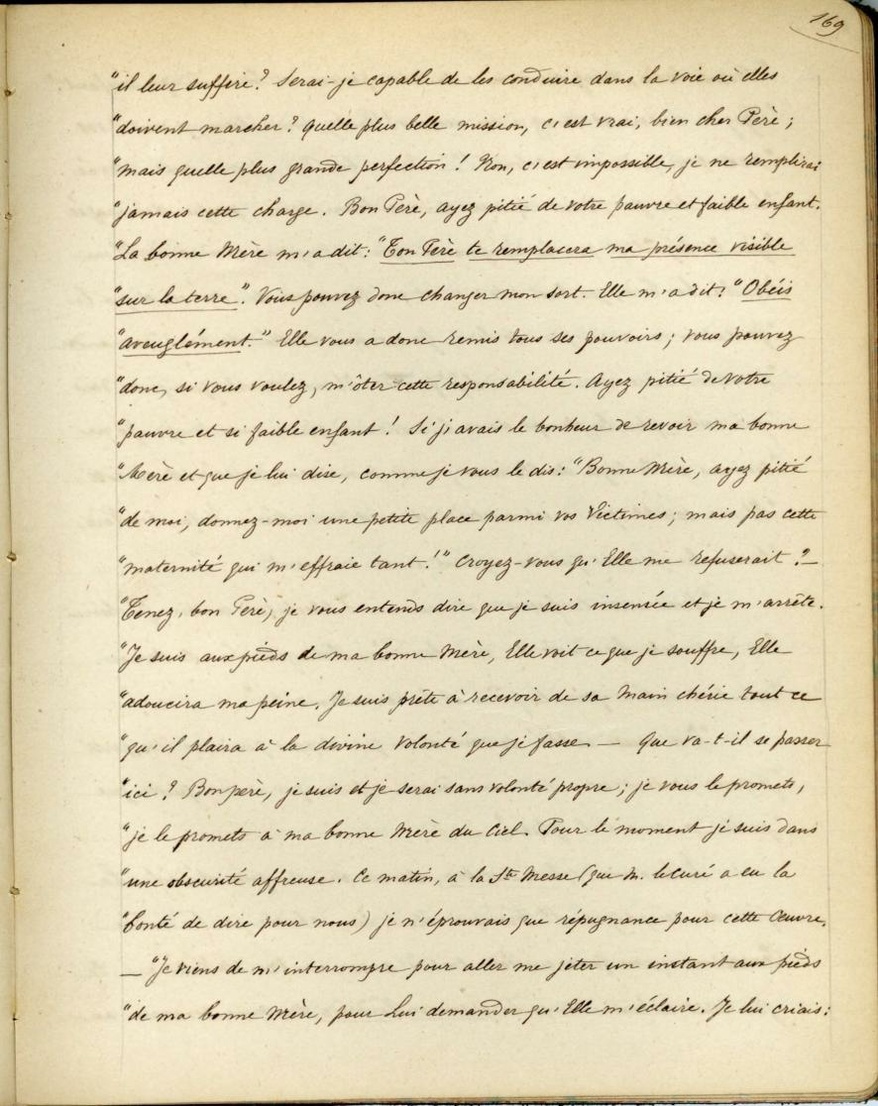 169
"il leur suffire? Serai-je capable de les conduire dans la voie où elles
"doivent marcher? Quelle plus belle mission, c'est vrai, bien cher Père;
"mais quelle plus grande perfection! Non, c'est impossible, je ne remplirai
"jamais cette charge. Bon Père, ayez pitié de votre pauvre et faible enfant.
"La bonne Mère m'a dit: "Ton Père te remplacera ma présence visible
"sur la terre". Vous pouvez donc changer mon sort. Elle m'a dit: "Obéis
"aveuglément." Elle vous a donc remis tous ses pouvoirs; vous pouvez
"donc, si vous voulez, m'ôter cette responsabilité. Ayez pitié de votre
"pauvre et si faible enfant! Si j'avais le bonheur de revoir ma bonne
"Mère et que je lui dise, comme je vous le dis: "Bonne Mère, ayez pitié
"de moi, donnez-moi une petite place parmi vos Victimes; mais pas cette
"maternité qui m'effraie tant!" Croyez-vous qu'Elle me refuserait?—
"Tenez, bon Père, je vous entends dire que je suis insensée et je m'arrête.
"Je suis aux pieds de ma bonne Mère, Elle voit ce que je souffre, Elle
"adoucira ma peine. Je suis prête à recevoir de sa Main chérie tout ce
"qu'il plaira à la divine Volonté que je fasse — Que va-t-il se passer
"ici? Bon père, je suis et je serai sans volonté propre; je vous le promets,
"je le promets à ma bonne Mère du Ciel. Pour le moment je suis dans
"une obscurité affreuse. Ce matin, à la Ste Messe (que M. le Curé a eu la
"bonté de dire pour nous) je n'éprouvais que répugnance pour cette Œuvre.
— "Je viens de m'interrompre pour aller me jeter un instant aux pieds
"de ma bonne Mère, pour Lui demander qu'Elle m'éclaire. Je lui criais: